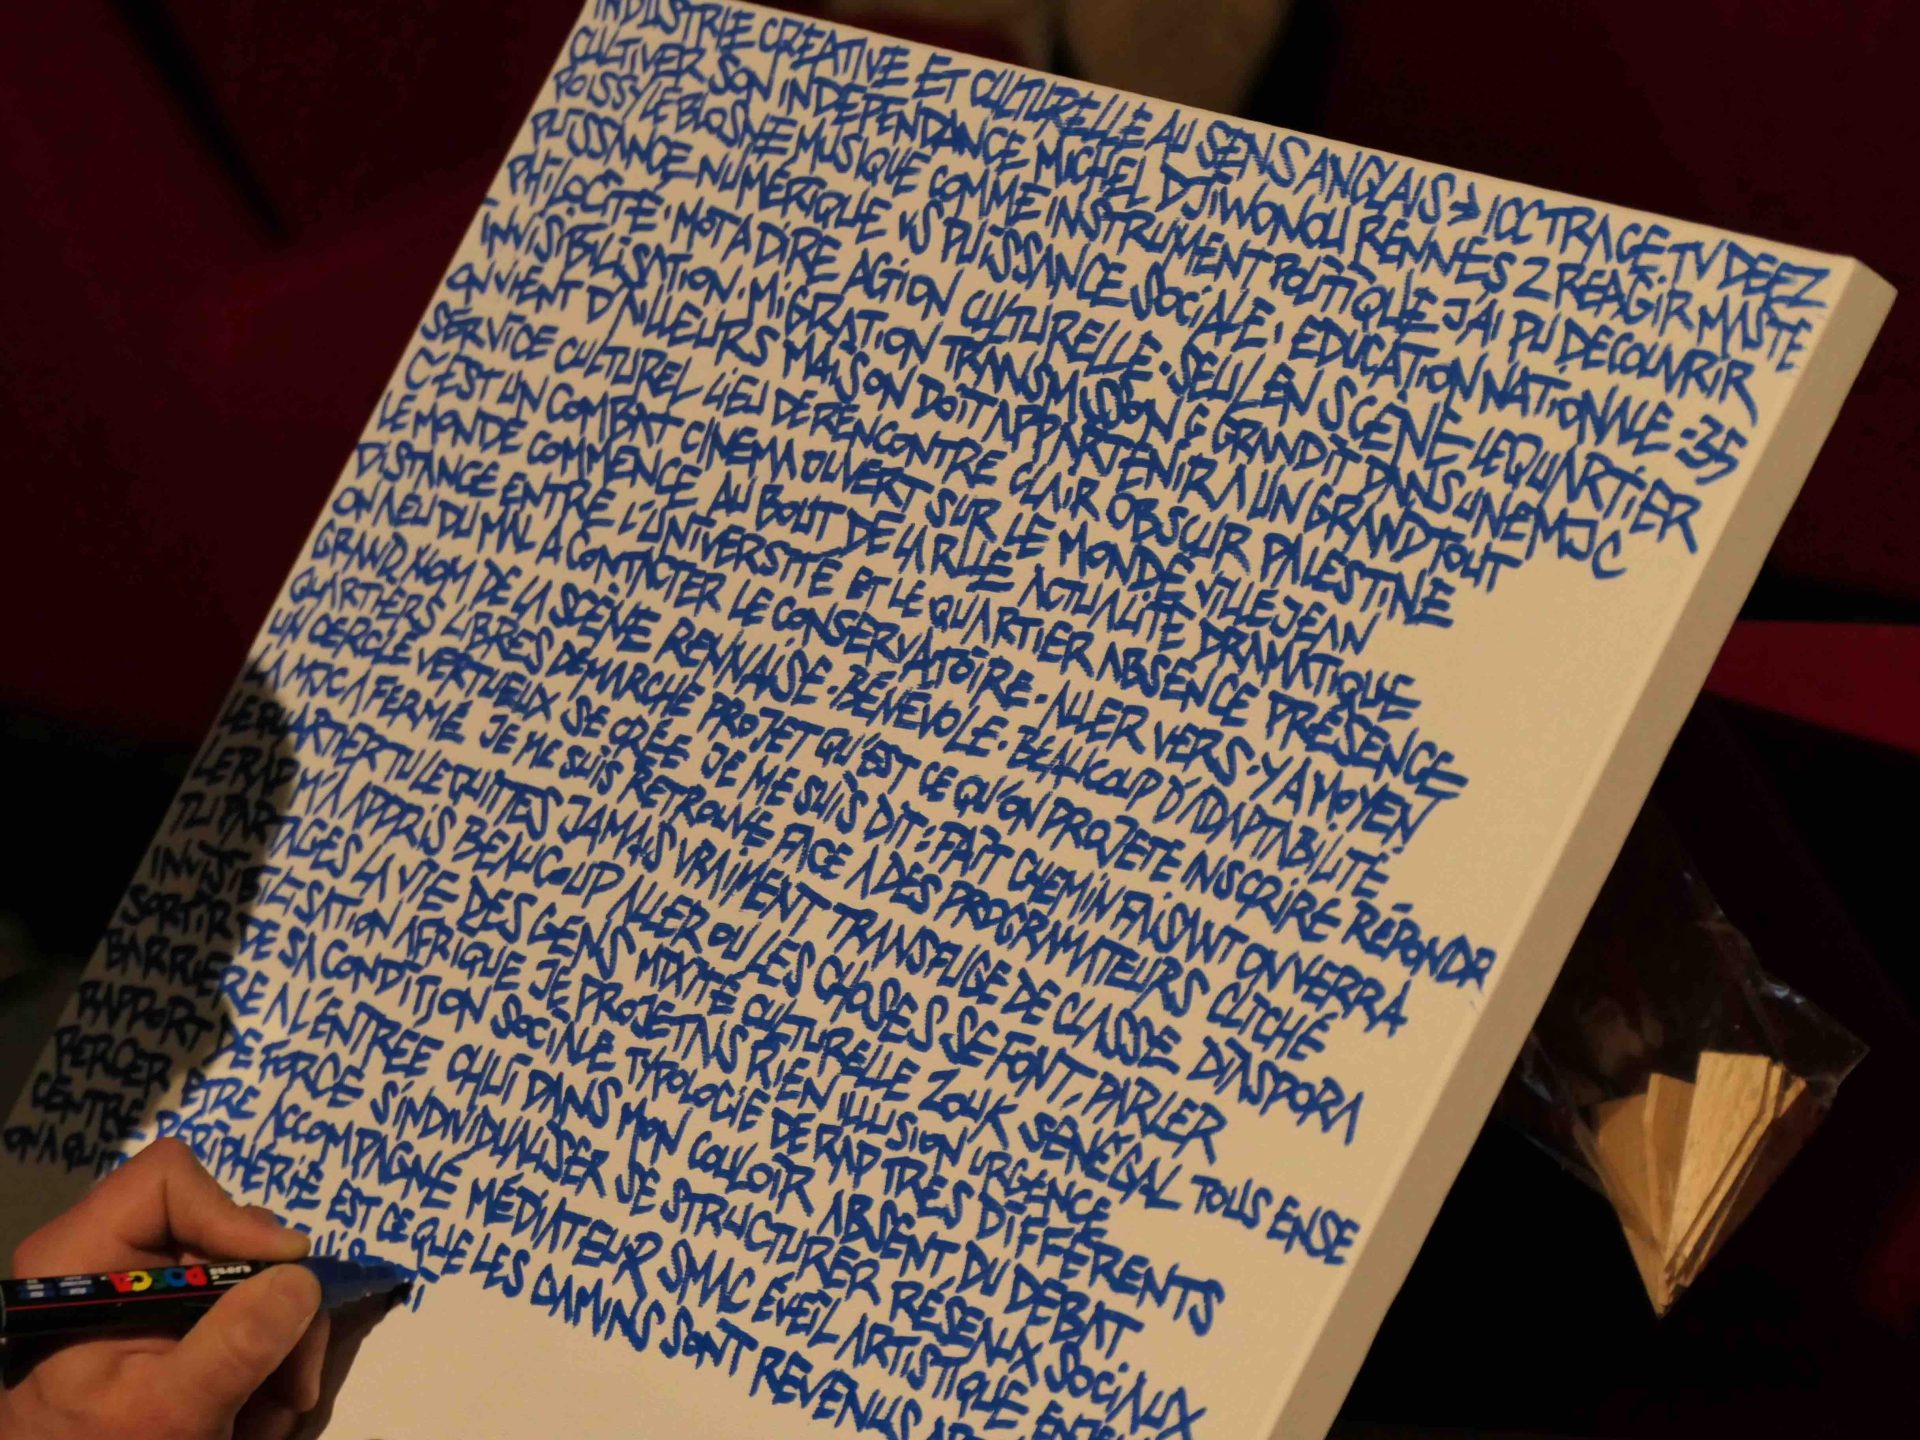 INDUSTRIE CRÉATIVE ET CULTURELLE AU SENS ANGLAIS → ICC TRACE TV DEEZ
CULTIVER SON INDÉPENDANCE MICHEL DJIWONOU RENNES 2 RÉAGIR MASTE
POISSY LE BLOSNE MUSIQUE COMME INSTRUMENT POLITIQUE J'AI PU DÉCOUVRIR
PUISSANCE NUMÉRIQUE VS PUISSANCE SOCIALE. ÉDUCATION NATIONALE
PHILOCITÉ. MOT A DIRE ACTION CULTURELLE. SEUL EN SCÈNE LE QUARTIER
INVISIBILISATION. MIGRATION TRANSMISSION GRANDIT DANS UNE MJC
ON VIENT D'AILLEURS MAIS ON DOIT APPARTENIR A UN GRAND TOUT
SERVICE CULTUREL LIEU DE RENCONTRE CLAIR OBSCUR PALESTINE
C'EST UN COMBAT CINEMA OUVERT SUR LE MONDE VILLEJEAN
LE MONDE COMMENCE AU BOUT DE LA RUE ACTUALITÉ DRAMATIQUE
DISTANCE ENTRE L'UNIVERSITÉ ET LE QUARTIER ABSENCE PRÉSENCE
ON A EU DU MAL A CONTACTER LE CONSERVATOIRE. ALLER VERS. Y A MOYEN
GRAND NOM DE LA SCÈNE RENNAISE. BÉNÉVOLE. BEAUCOUP D'ADAPTABILITÉ
QUARTIERS LIBRES DÉMARCHE PROJET QU'EST CE QU'ON PROJETE INSCRIRE RÉPONDR
UN CERCLE VERTUEUX SE CRÉE JE ME SUIS DIT : FAIT CHEMIN FAISANT ON VERRA
LA MJC A FERMÉ JE ME SUIS RETROUVÉ FACE A DES PROGRAMATEURS CLICHÉ
LE QUARTIER TU LE QUITTES JAMAIS VRAIMENT TRANSFUGE DE CLASSE DIASPORA
LE RAP M'A APPRIS BEAUCOUP ALLER OU LES CHOSES SE FONT, PARLER
TU PARTAGES LA VIE DES GENS MIXITÉ CULTURELLE ZOUK SÉNÉGAL TOUS ENSE
INVISIBILISATION AFRIQUE JE PROJETAIS RIEN ILLUSION URGENCE
SORTIR DE SA CONDITION SOCIALE TYPOLOGIE DE RAP TRÈS DIFFÉRENTS
BARRIERE A L'ENTRÉE CHUI DANS MON COULOIR ABSENT DU DÉBAT
RAPPORT DE FORCE S'INDIVIDUALISER JE STRUCTURER RÉSEAUX SOCIAUX
PERCER ETRE ACCOMPAGNÉ MÉDIATEUR SMAC ÉVEIL ARTISTIQUE
CENTRE PÉRIPHÉRIE EST CE QUE LES GAMINS SONT REVENUS
ON A QUITT
POSCA